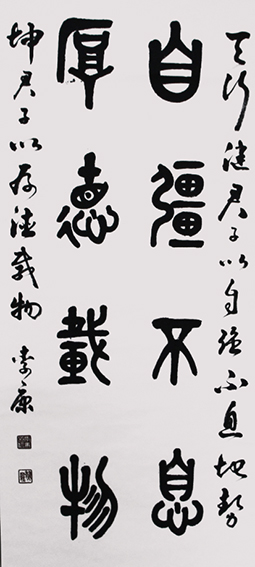 天行健君子以自强不息地势
自彊不息
厚德載物
坤君子以厚德载物